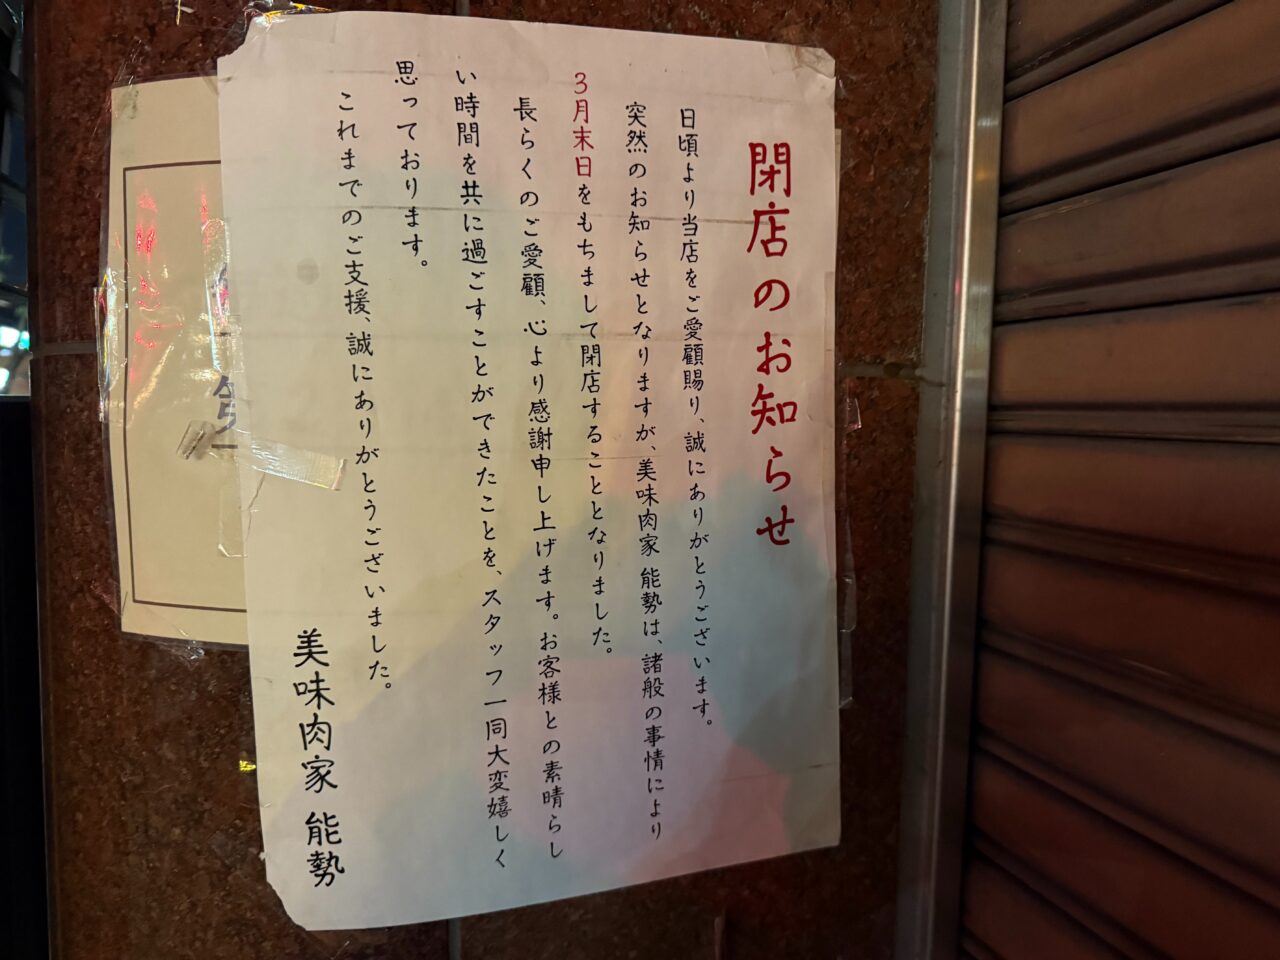 閉店のお知らせ
日頃より当店をご愛顧賜り、誠にありがとうございます。
突然のお知らせとなりますが、美味肉家 能勢は、諸般の事情により
3月末日をもちまして閉店することとなりました。
長らくのご愛顧、心より感謝申し上げます。お客様との素晴らし
い時間を共に過ごすことができたことを、スタッフ一同大変嬉しく
思っております。
これまでのご支援、誠にありがとうございました。
美味肉家 能勢